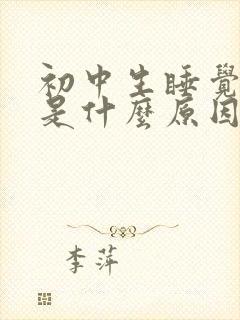 初中生睡覺
是什麼原因
李萍